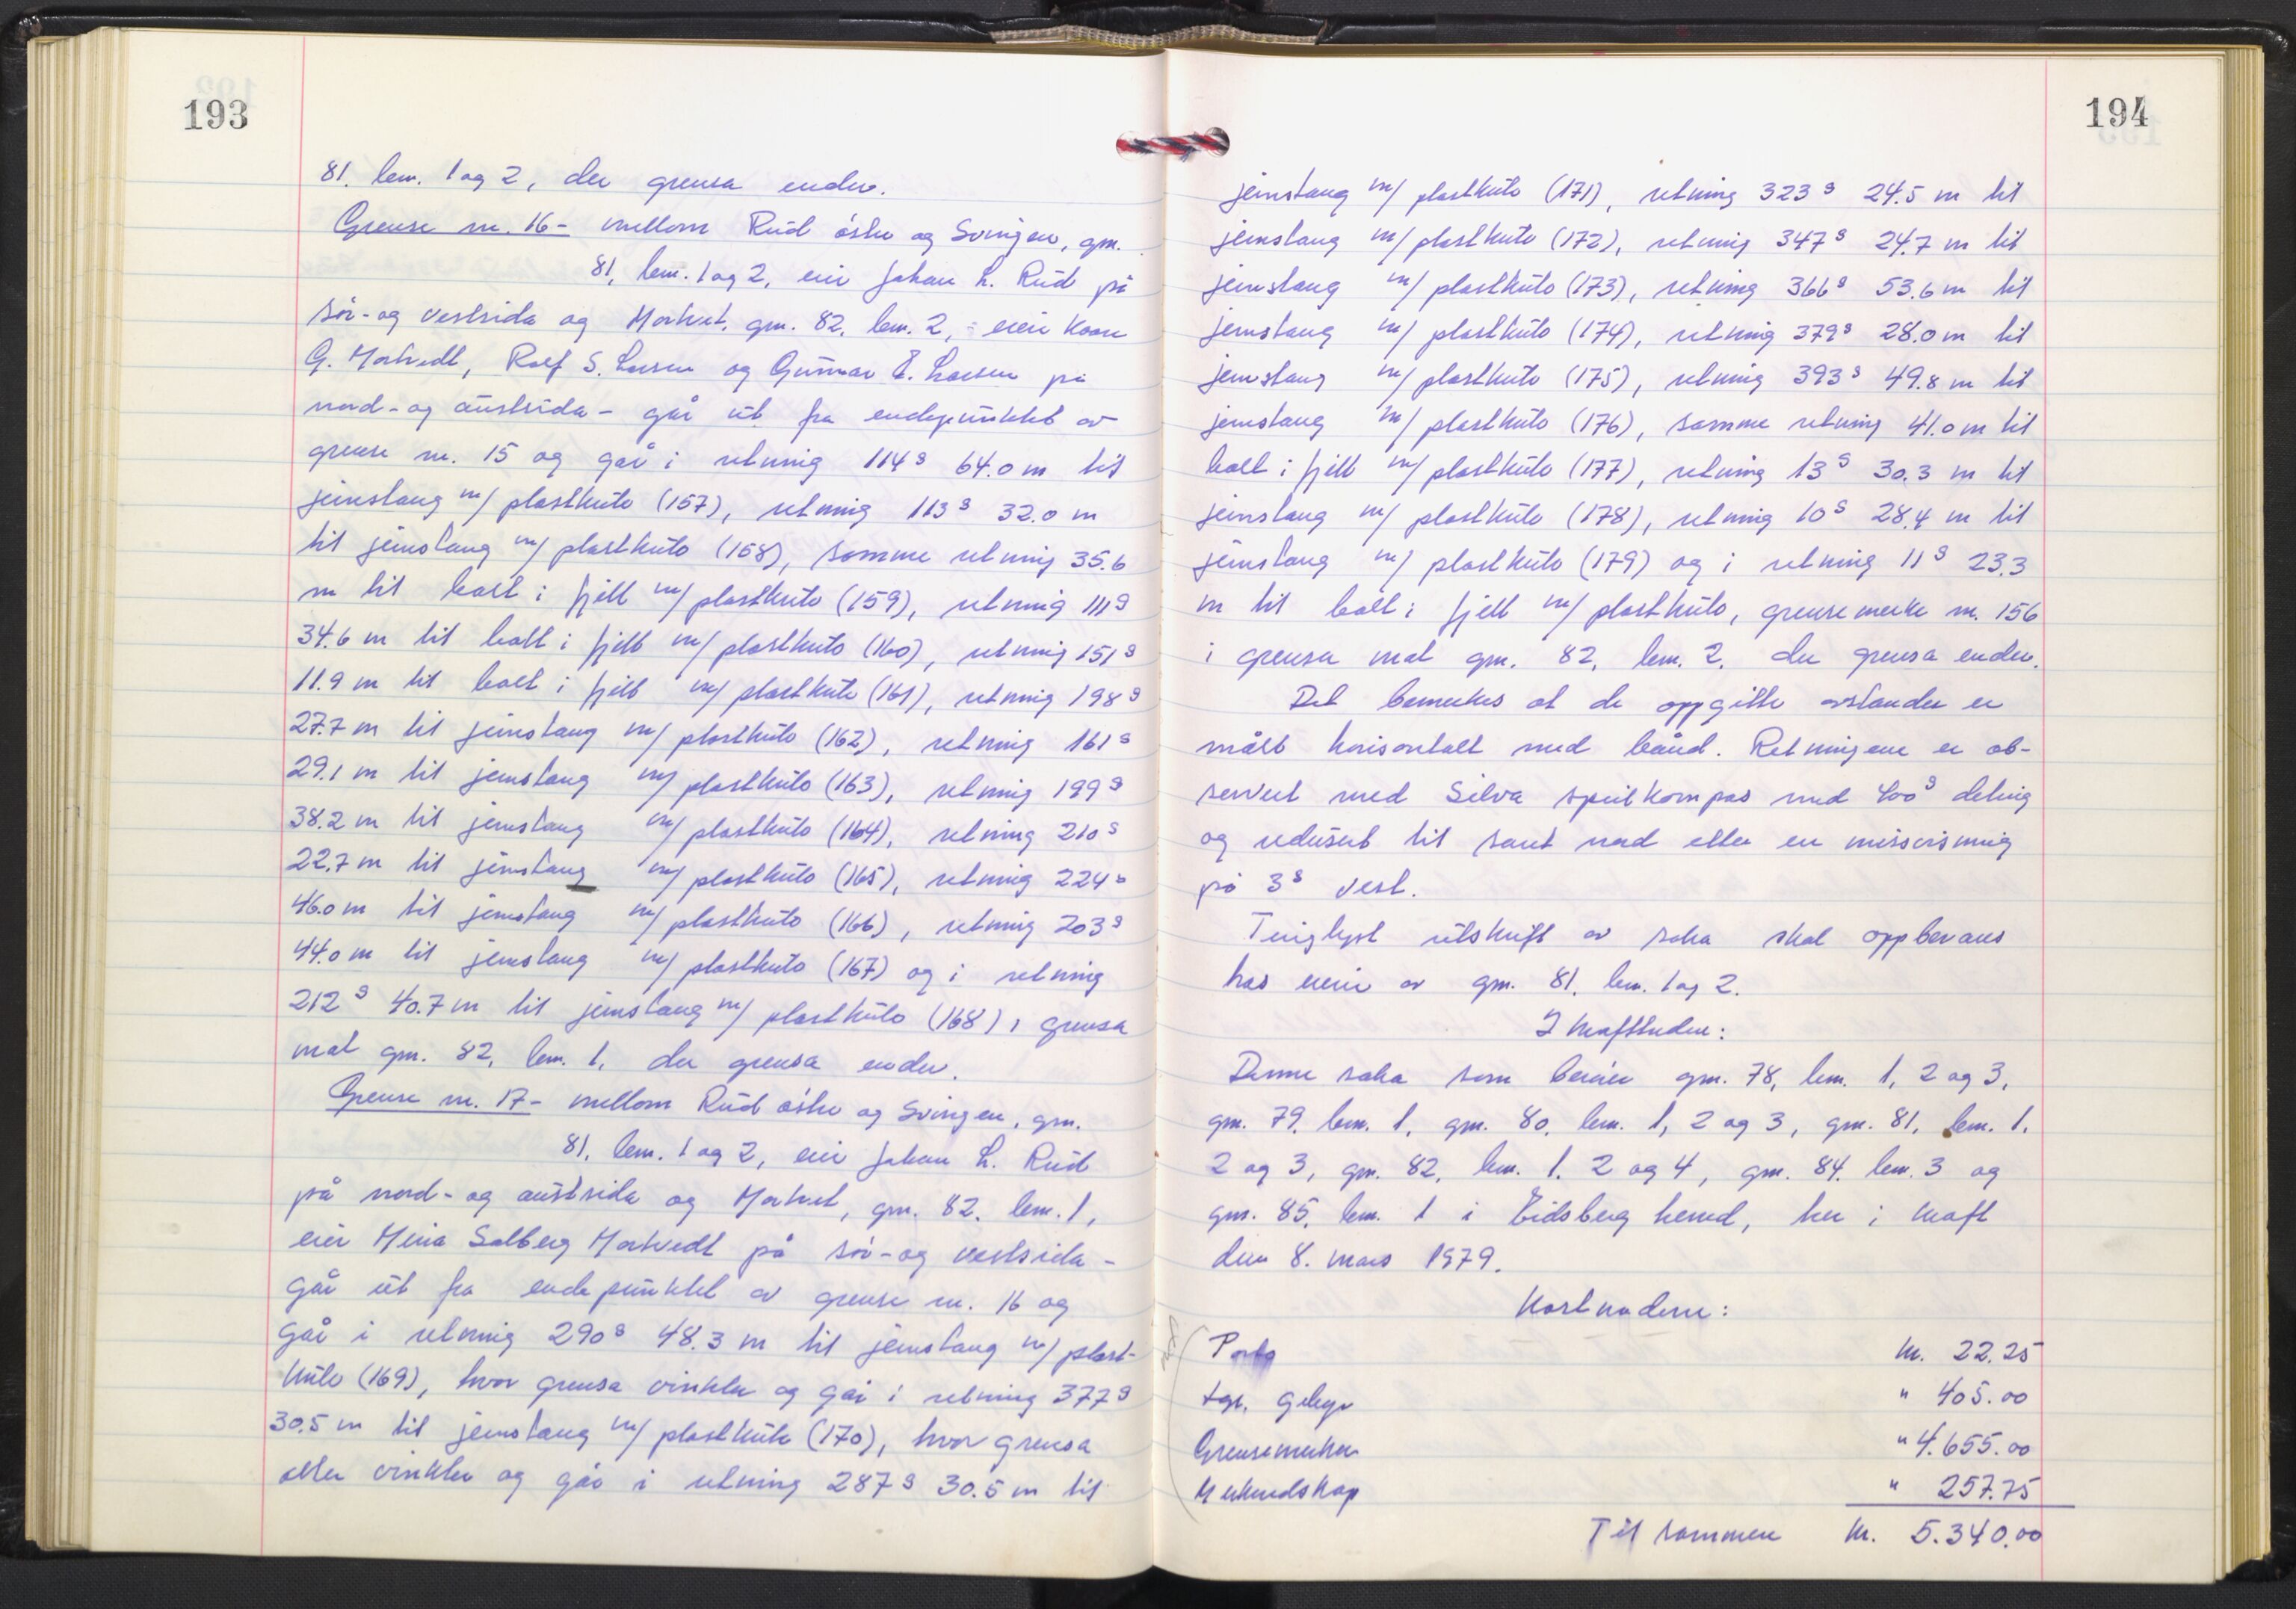 193
81. brnr. 1 og 2, der grensa ender.
Grense nr. 16 - mellom Rud østre og Svingen, gnr.
81, brnr. 1 og 2, eier Johan L. Rud på
sør- og vestsida og Mortvet, gnr. 82, brnr. 2, - eier Kaare
G. Mortvedt, Rolf S. Larsen og Gunnar E. Larsen på
nord- og austsida - går ut fra endepunktet av
grense nr. 15 og går i retning 114 g 64.0 m til
jernstang m/ plastkule (157), retning 113 g 32.0 m
til jernstang m/ plastkule (158), samme retning 35.6
m til bolt i fjell m/ plastkule (159), retning 111 g
34.6 m til bolt i fjell m/ plastkule (160), retning 151 g
11.9 m til bolt i fjell m/ plastkule (161), retning 198 g
27.7 m til jernstang m/ plastkule (162), retning 161 g
29.1 m til jernstang m/ plastkule (163), retning 199 g
38.2 m til jernstang m/ plastkule (164), retning 210 g
22.7 m til jernstang m/ plastkule (165), retning 224 g
46.0 m til jernstang m/ plastkule (166), retning 203 g
44.0 m til jernstang m/ plastkule (167) og i retning
212 g 40.7 m til jernstang m/ plastkule (168) i grensa
mot gnr. 82, brnr. 1, der grensa ender.
Grense nr. 17 - mellom Rud østre og Svingen, gnr.
81, brnr. 1 og 2, eier Johan L. Rud
på nord- og austsida og Mortvet, gnr. 82, brnr. 1,
eier Mina Solberg Mortvedt på sør- og vestsida -
går ut fra endepunktet av grense nr. 16 og
går i retning 290 g 48.3 m til jernstang m/ plast-
kule (169), hvor grensa vinkler og går i retning 377 g
30.5 m til jernstang m/ plastkule (170), hvor grensa
atter vinkler og går i retning 287 g 30.5 m til
194
jernstang m/ plastkule (171), retning 323 g 24.5 m til
jernstang m/ plastkule (172), retning 347 g 24.7 m til
jernstang m/ plastkule (173), retning 366 g 53.6 m til
jernstang m/ plastkule (174), retning 379 g 28.0 m til
jernstang m/ plastkule (175), retning 393 g 49.8 m til
jernstang m/ plastkule (176), samme retning 41.0 m til
bolt i fjell m/ plastkule (177), retning 13 g 30.3 m til
jernstang m/ plastkule (178), retning 10 g 28.4 m til
jernstang m/ plastkule (179) og i retning 11 g 23.3
m til bolt i fjell m/ plastkule, grensemerke nr. 156
i grensa mot gnr. 82, brnr. 2, der grensa ender.
Det bemerkes at de oppgitte avstander er
målt horisontalt med bånd. Retningene er ob-
servert med Silva speilkompas med 400 g deling
og redusert til sant nord etter en misvisning
på 3 g vest.
Tinglyst utskrift av saka skal oppbevares
hos eier av gnr. 81, brnr. 1 og 2.
I kraftreden:
Denne saka som berører gnr. 78, brnr. 1, 2 og 3,
gnr. 79, brnr. 1, gnr. 80, brnr. 1, 2 og 3, gnr. 81, brnr. 1,
2 og 3, gnr. 82, brnr. 1, 2 og 4, gnr. 84, brnr. 3 og
gnr. 85, brnr. 1 i Eidsberg herred, ble i kraft
den 8. mars 1979.
Kostnadene:
Porto kr. 22.25
tgl. gebyr " 405.00
Grensemerker " 4.655.00
Merkredskap " 257.75
Til sammen kr. 5.340.00